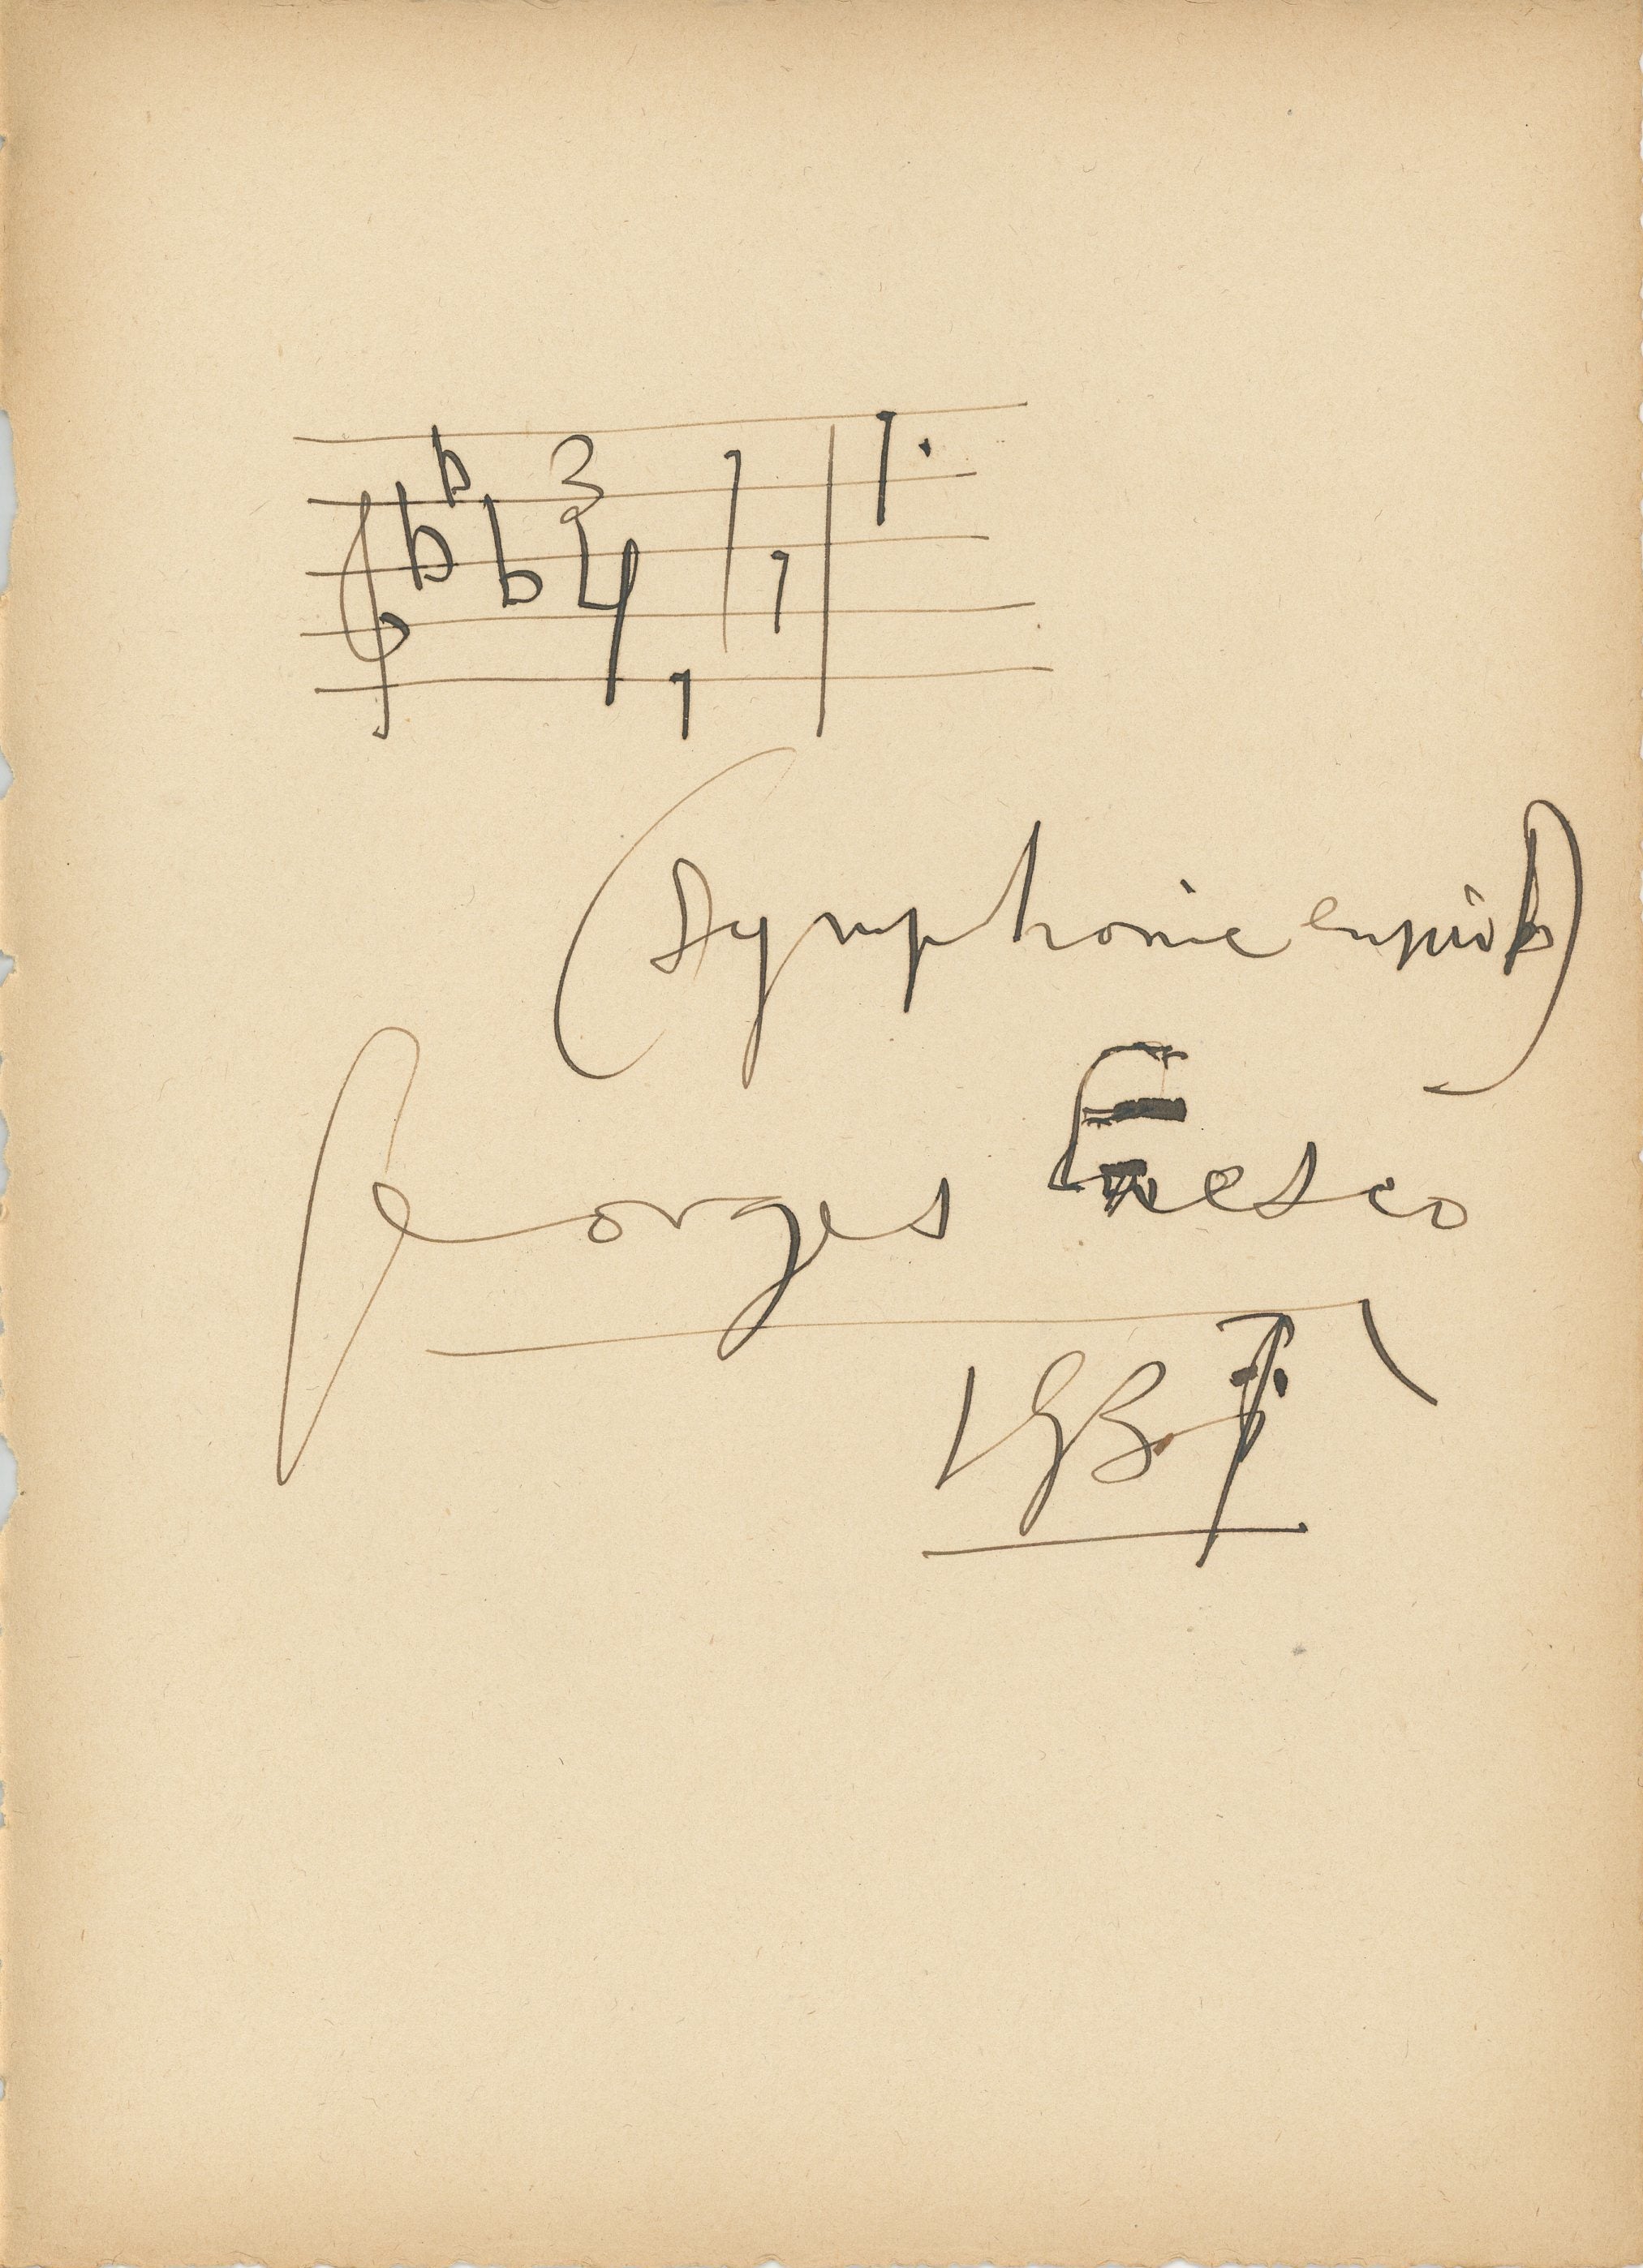 3
4
(Symphonie en mi b)
Georges Enesco